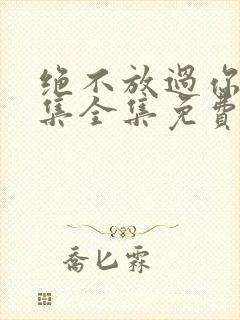 绝不放過你
集全集免費
喬匕霖